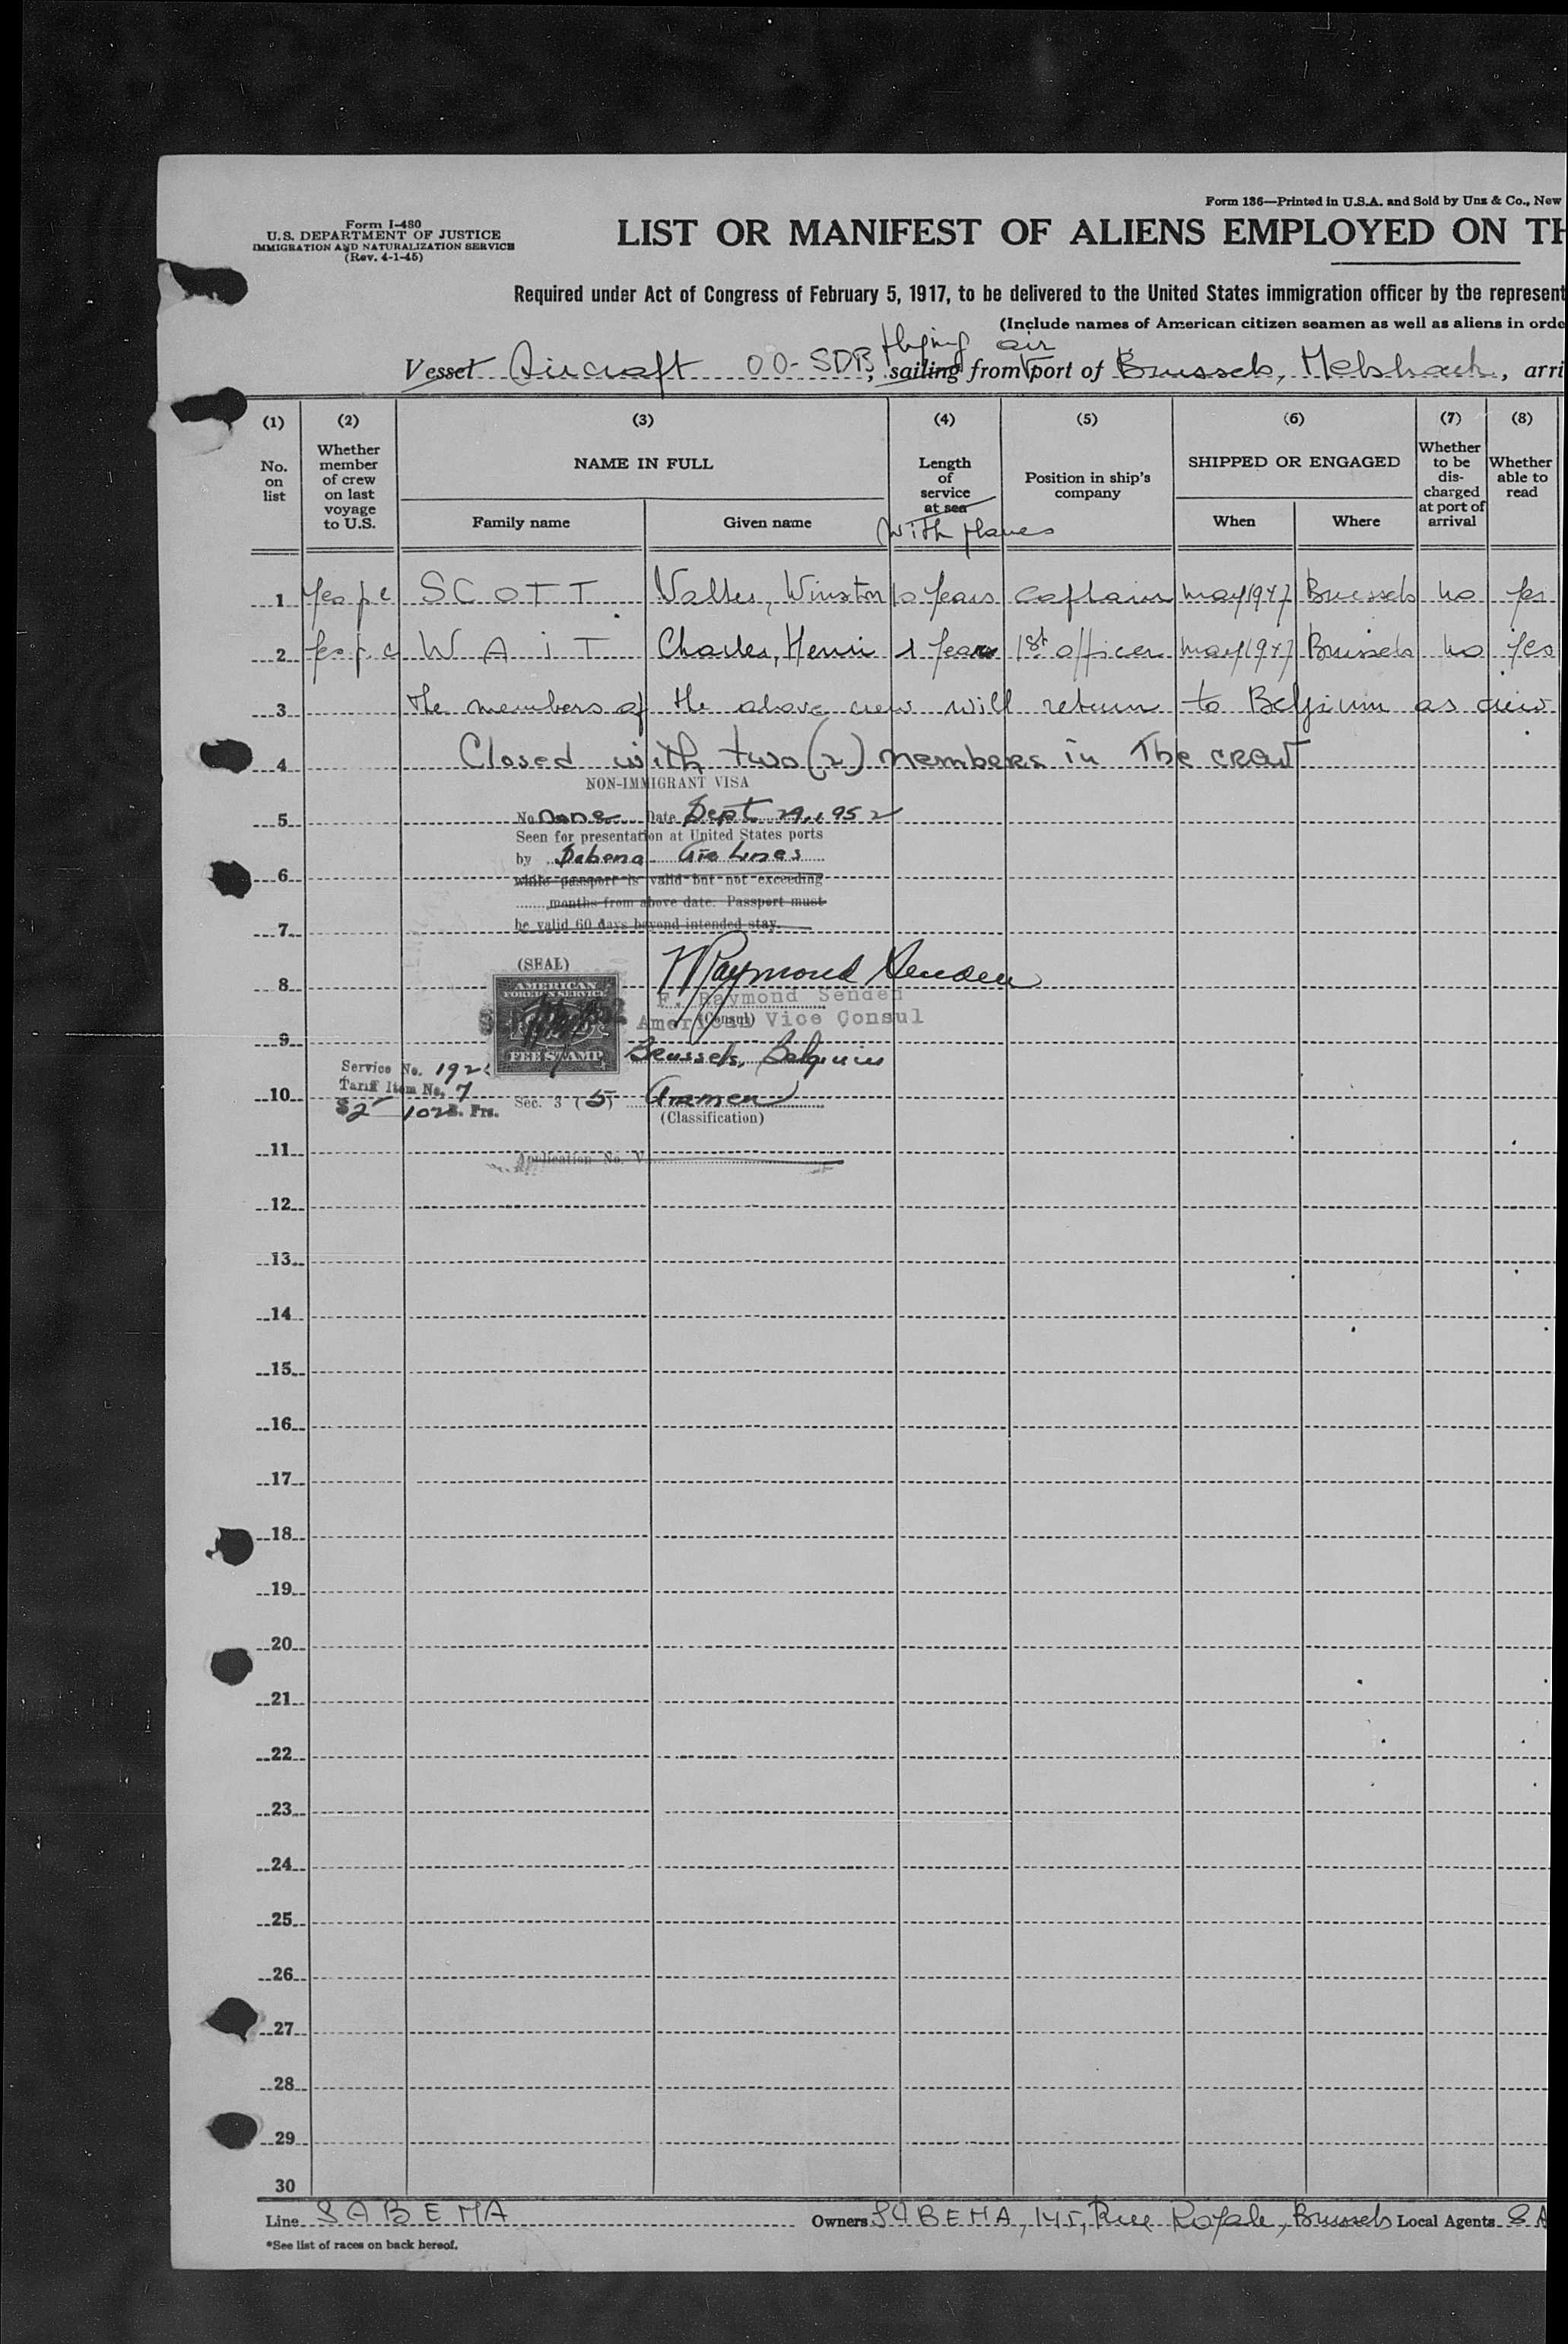 Form 136—Printed in U.S.A. and Sold by Unz & Co., New
Form I-480
U.S. DEPARTMENT OF JUSTICE
IMMIGRATION AND NATURALIZATION SERVICE
(Rev. 4-1-45)
LIST OR MANIFEST OF ALIENS EMPLOYED ON TH
Required under Act of Congress of February 5, 1917, to be delivered to the United States immigration officer by the represent
(Include names of American citizen seamen as well as aliens in orde
flying air
Vessel Aircraft OO-SDB, sailing from port of Brussels, Melsbroek, arri
(1) (2) (3) (4) (5) (6) (7) (8)
No. on list
Whether member of crew on last voyage to U.S.
NAME IN FULL
Family name Given name
Length of service at sea
with planes
Position in ship's company
SHIPPED OR ENGAGED
When Where
Whether to be discharged at port of arrival
Whether able to read
1 Yes SCOTT Walter, Winston 10 Years Captain May 1947 Brussels no yes
2 Yes WAIT Charles, Henri 1 Year 1st officer May 1947 Brussels no yes
3 The members of the above crew will return to Belgium as crew
4 Closed with two (2) members in The crew
NON-IMMIGRANT VISA
5 No. none Date Sept 29, 1952
Seen for presentation at United States ports
by Sabena Air Lines
6 while passport is valid but not exceeding
months from above date. Passport must
7 be valid 60 days beyond intended stay.
(SEAL) F Raymond Senden
8 AMERICAN FOREIGN SERVICE
F. Raymond Senden
American Vice Consul
(Consul)
9
FEE STAMP Brussels, Belgium
Service No. 192
Tariff Item No. 7
10 Sec. 3 (5) Airmen
$2 102 B. Frs.
(Classification)
11 Application No. V
12
13
14
15
16
17
18
19
20
21
22
23
24
25
26
27
28
29
30
Line SABENA Owners SABENA, 145, Rue Royale, Brussels Local Agents SA
*See list of races on back hereof.